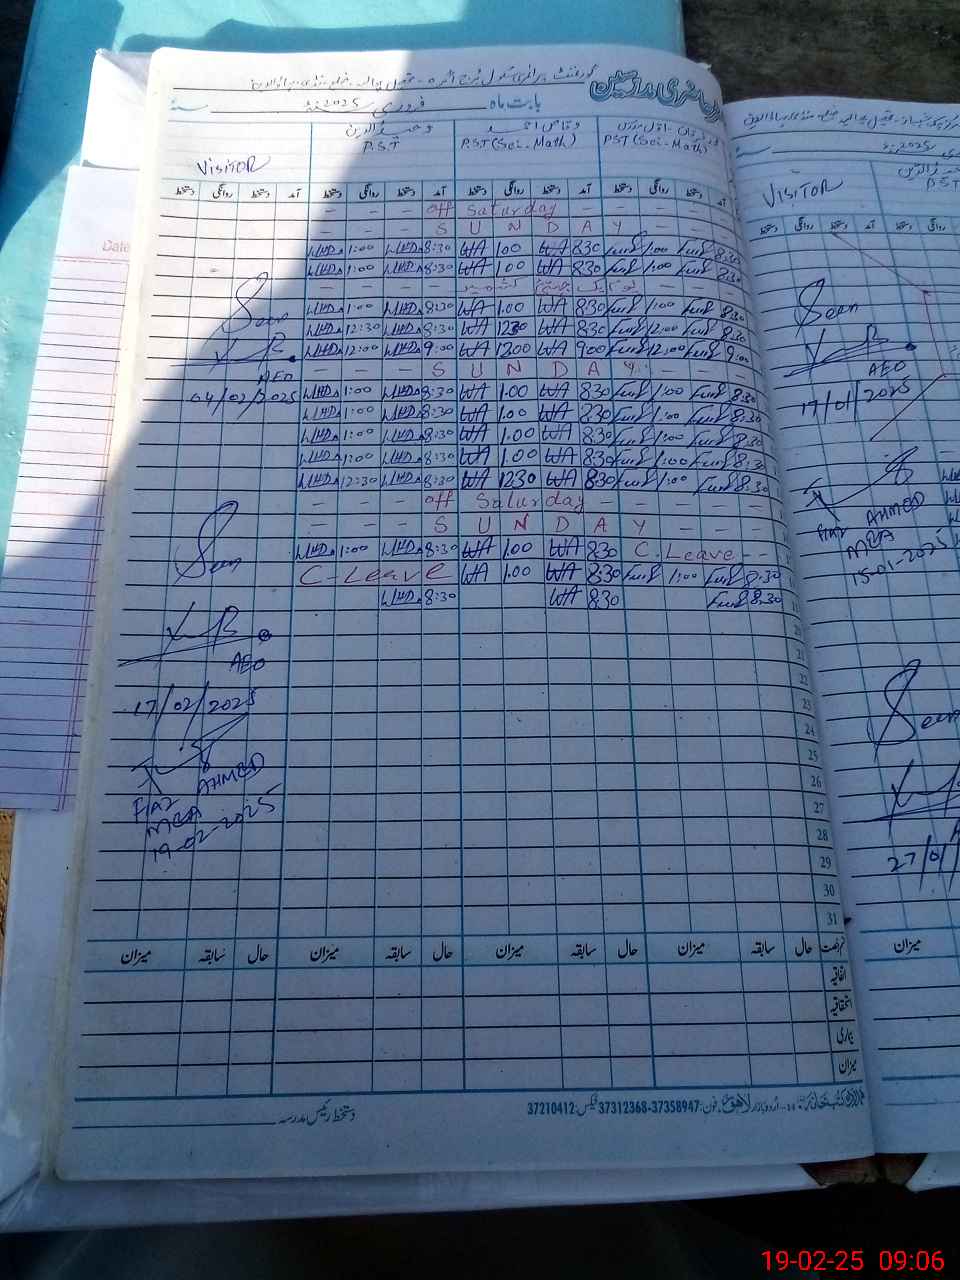 حاضری مدرسین
بابت ماہ فروری 2025ء سنہ
VISITOR
وحید الدین
P.S.T
وقاص احمد
P.ST (Sci-Math)
PST (Sci-Math)
دستخط روانگی دستخط آمد دستخط روانگی دستخط آمد دستخط روانگی دستخط آمد دستخط روانگی دستخط آمد
- - - off Saturday - - - -
- - - S U N D A Y - - -
WHD 1:00 WHD 8:30 WA 1.00 WA 830 1:00 8:30
WHD 1:00 WHD 8:30 WA 1.00 WA 830 1:00 8:30
یوم یکجہتی کشمیر
WHD 1:00 WHD 8:30 WA 1.00 WA 830 1:00 8:30
WHD 12:30 WHD 8:30 WA 1230 WA 830 12:00 8:30
WHD 12:00 WHD 9:00 WA 1200 WA 900 12:00 9:00
- - - S U N D A Y - - -
WHD 1:00 WHD 8:30 WA 1.00 WA 830 1:00 8:30
WHD 1:00 WHD 8:30 WA 1.00 WA 830 1:00 8:30
WHD 1:00 WHD 8:30 WA 1.00 WA 830 1:00 8:30
WHD 1:00 WHD 8:30 WA 1.00 WA 830 1:00 8:30
WHD 12:30 WHD 8:30 WA 1230 WA 830 1:00 8:30
- - - off Saturday - - - -
- - - S U N D A Y - - -
WHD 1:00 WHD 8:30 WA 1.00 WA 830 C.Leave - -
C-Leave WA 1.00 WA 8:30 1:00 8:30
WHD 8:30 WA 8:30 8:30
Seen
AEO
04/02/2025
Seen
AEO
17/02/2025
FIAZ AHMED
MEA
19-02-2025
20
21
22
23
24
25
26
27
28
29
30
31
میزان سابقہ حال میزان سابقہ حال میزان سابقہ حال میزان سابقہ حال قسم رخصت
اتفاقیہ
استحقاقیہ
بیماری
میزان
دستخط رئیس مدرسہ
اُردو بازار لاہور فون: 37358947-37312368 فیکس: 37210412
Date
2025
VISITOR
P.S.T
دستخط روانگی دستخط آمد دستخط روانگی
Seen
AEO
17/01/2025
FIAZ AHMED
MEA
15-01-2025
Seen
27/01/
میزان
19-02-25 09:06